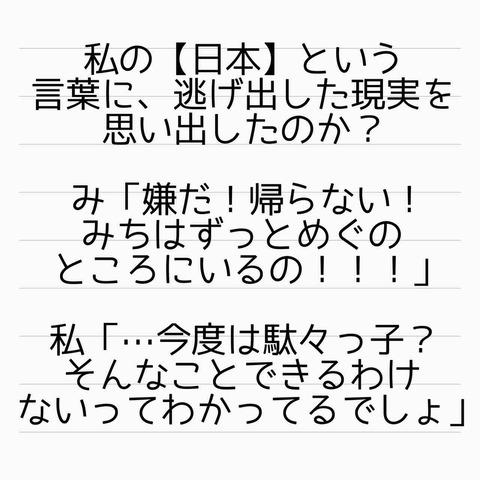 私の【日本】という
言葉に、逃げ出した現実を
思い出したのか？
み「嫌だ！帰らない！
みちはずっとめぐの
ところにいるの！！！」
私「…今度は駄々っ子？
そんなことできるわけ
ないってわかってるでしょ」